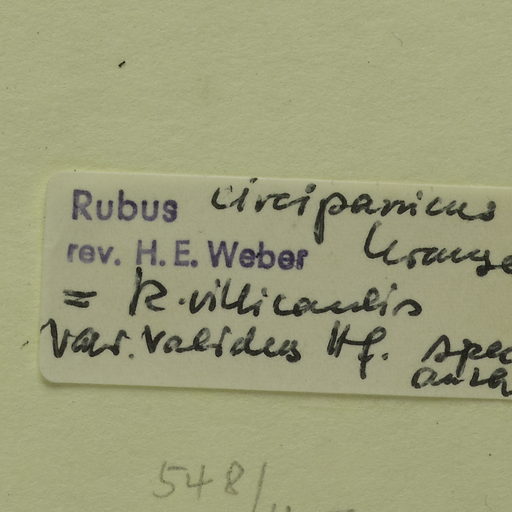 Rubus circipanicus
rev. H. E. Weber Krause
= R. villicaulis
var. validus Hf. spec
548/